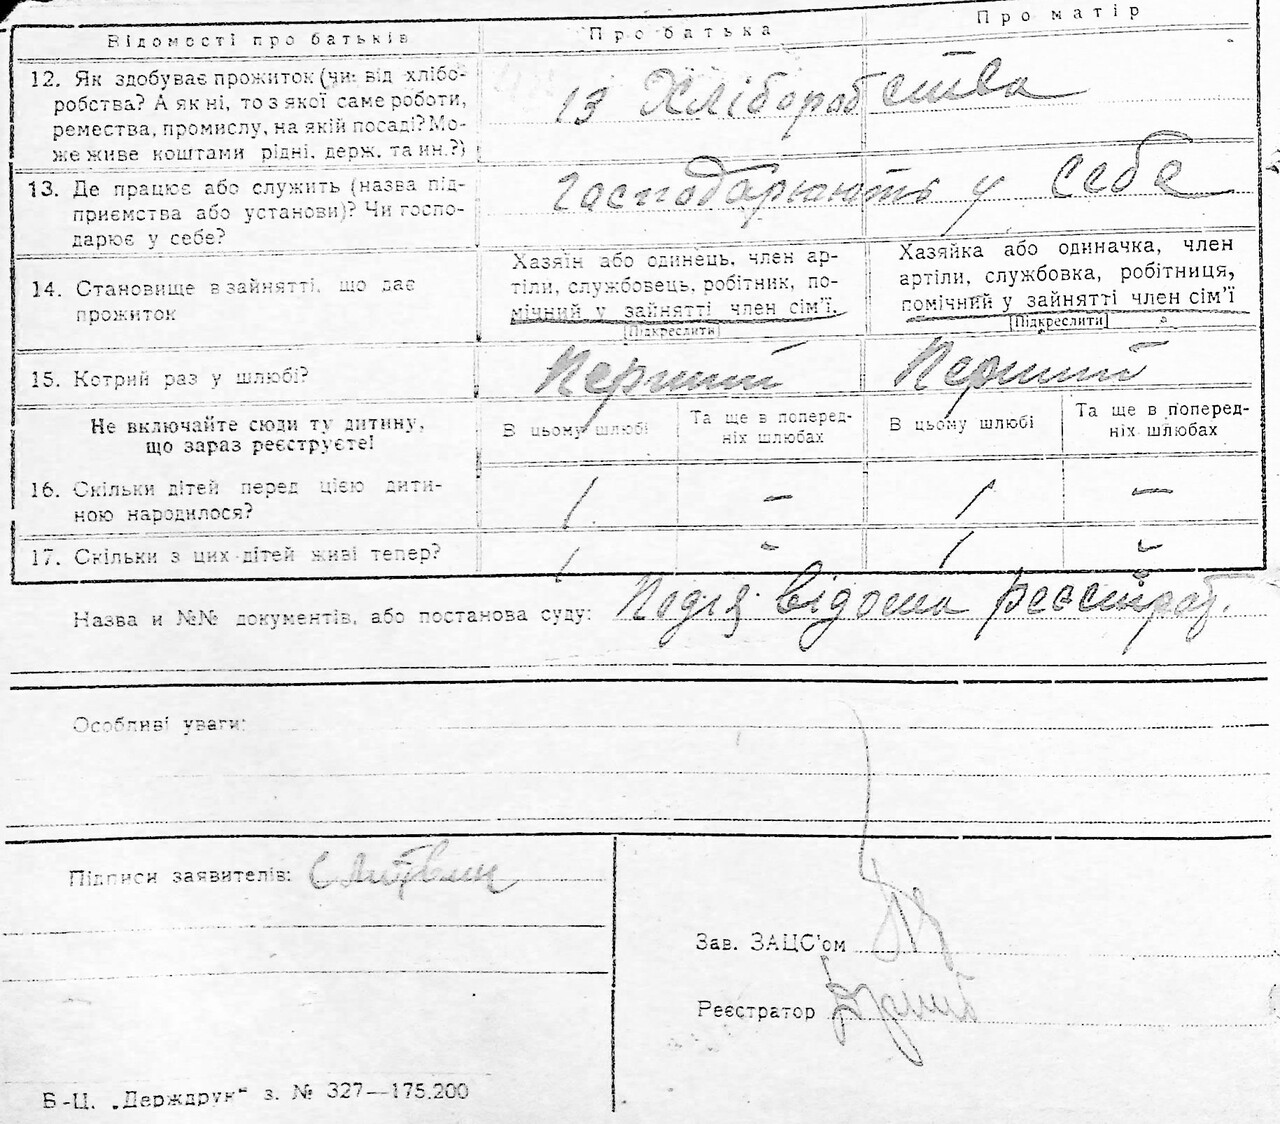 Відомості про батьків
Про батька
Про матір
12. Як здобуває прожиток (чи: від хлібо-
робства? А як ні, то з якої саме роботи,
ремества, промислу, на якій посаді? Мо-
же живе коштами рідні, держ. та ин.?)
із хліборобства
13. Де працює або служить (назва під-
приємства або установи)? Чи госпо-
дарює у себе?
господарюють у себе
14. Становище в зайнятті, що дає
прожиток
Хазяїн або одинець, член ар-
тілі, службовець, робітник, по-
мічний у зайнятті член сім'ї.
[Підкреслити]
Хазяйка або одиначка, член
артіли, службовка, робітниця,
помічний у зайнятті член сім'ї
[Підкреслити]
15. Котрий раз у шлюбі?
Перший
Перший
Не включайте сюди ту дитину,
що зараз реєструєте!
В цьому шлюбі
Та ще в поперед-
ніх шлюбах
В цьому шлюбі
Та ще в поперед-
ніх шлюбах
16. Скільки дітей перед цією дити-
ною народилося?
1 — 1 —
17. Скільки з цих дітей живі тепер?
1 - 1 -
Назва и №№ документів, або постанова суду: Подія відома реєстрат.
Особливі уваги:
Підписи заявителів: С Литвин
Зав. ЗАЦС'ом
Реєстратор
Б-Ц. „Держдрук“ з. № 327—175.200